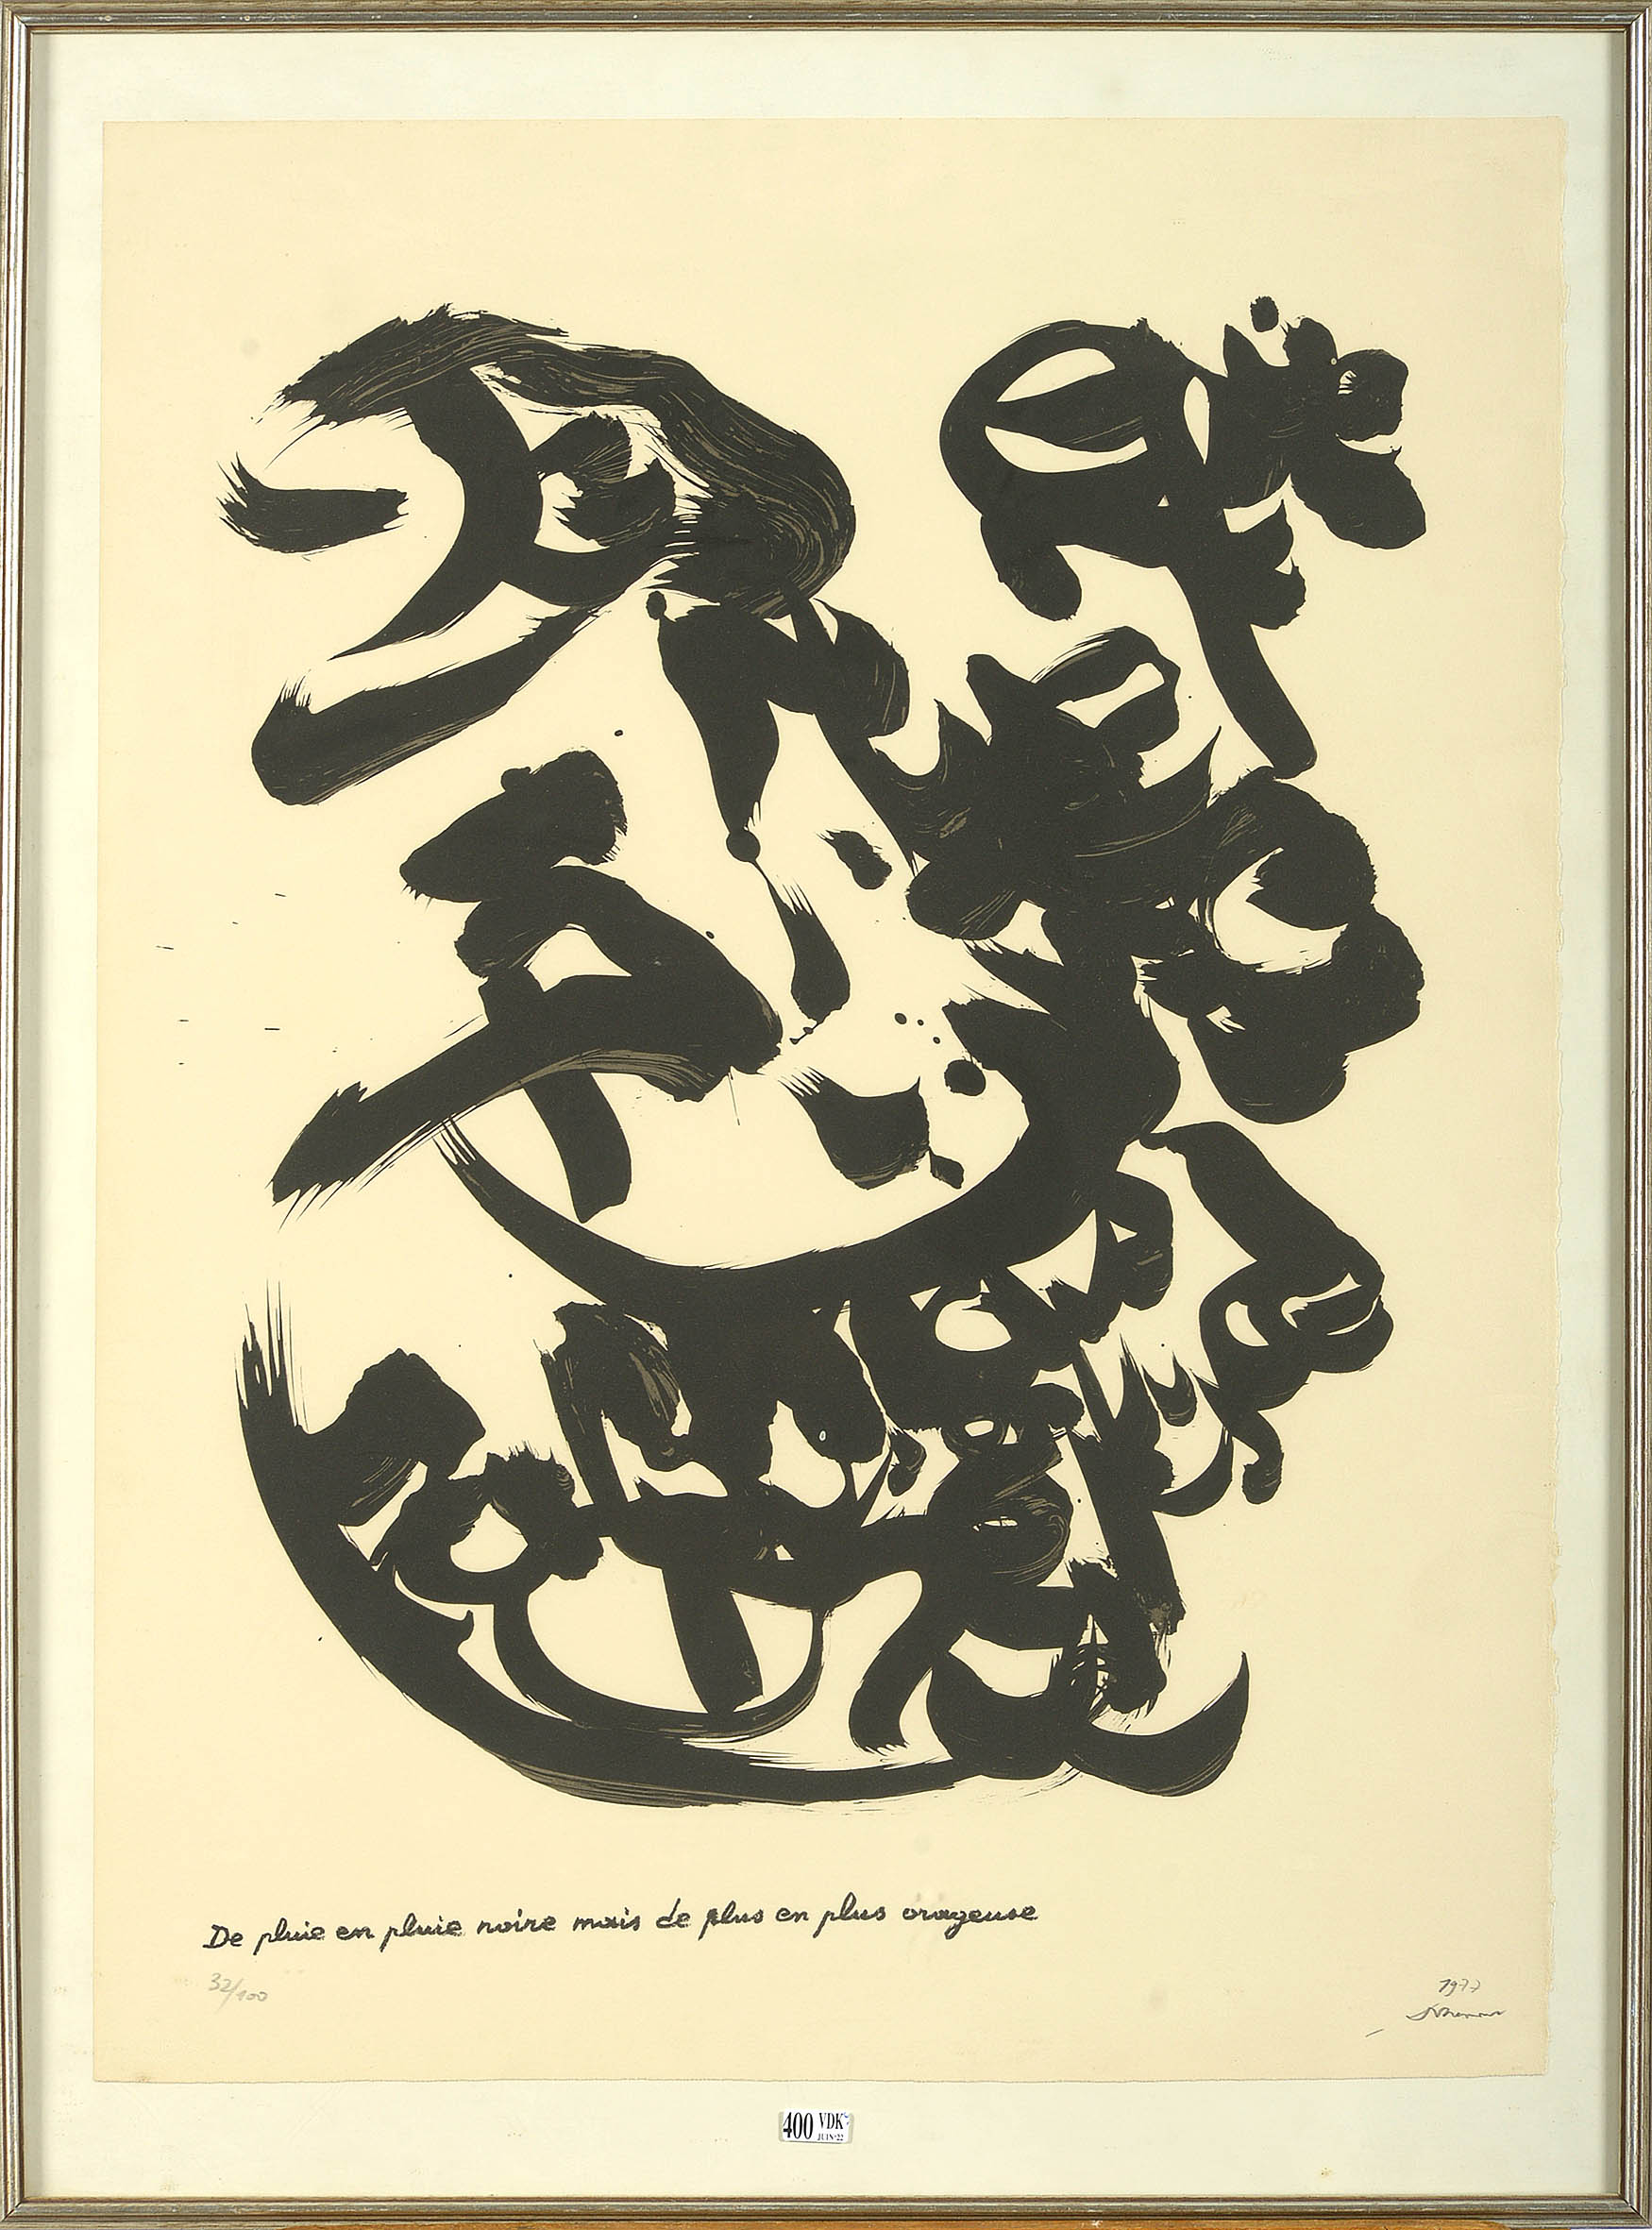 De pluie en pluie noire mais de plus en plus orageuse
32/100
1977
400 VDK
JUIN-22